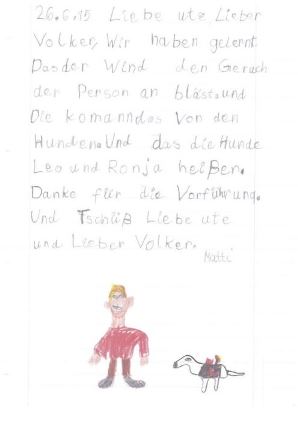 26.6.15 Liebe utz Lieber
Volker, Wir haben gelernt
Das der Wind den Geruch
der Person an bläst. und
Die komanndos Von den
Hunden. Und das die Hunde
Leo und Ronja heißen.
Danke für die Vorführung.
Und Tschüß Liebe ute
und Lieber Volker.
Matti